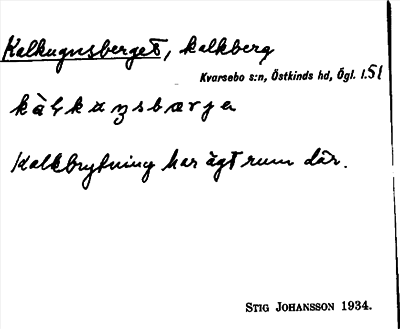 Kalkugnsberget, kalkberg
Kvarsebo s:n, Östkinds hd, Ögl. l.51
Kalkbrytning har ägt rum där.
STIG JOHANSSON 1934.